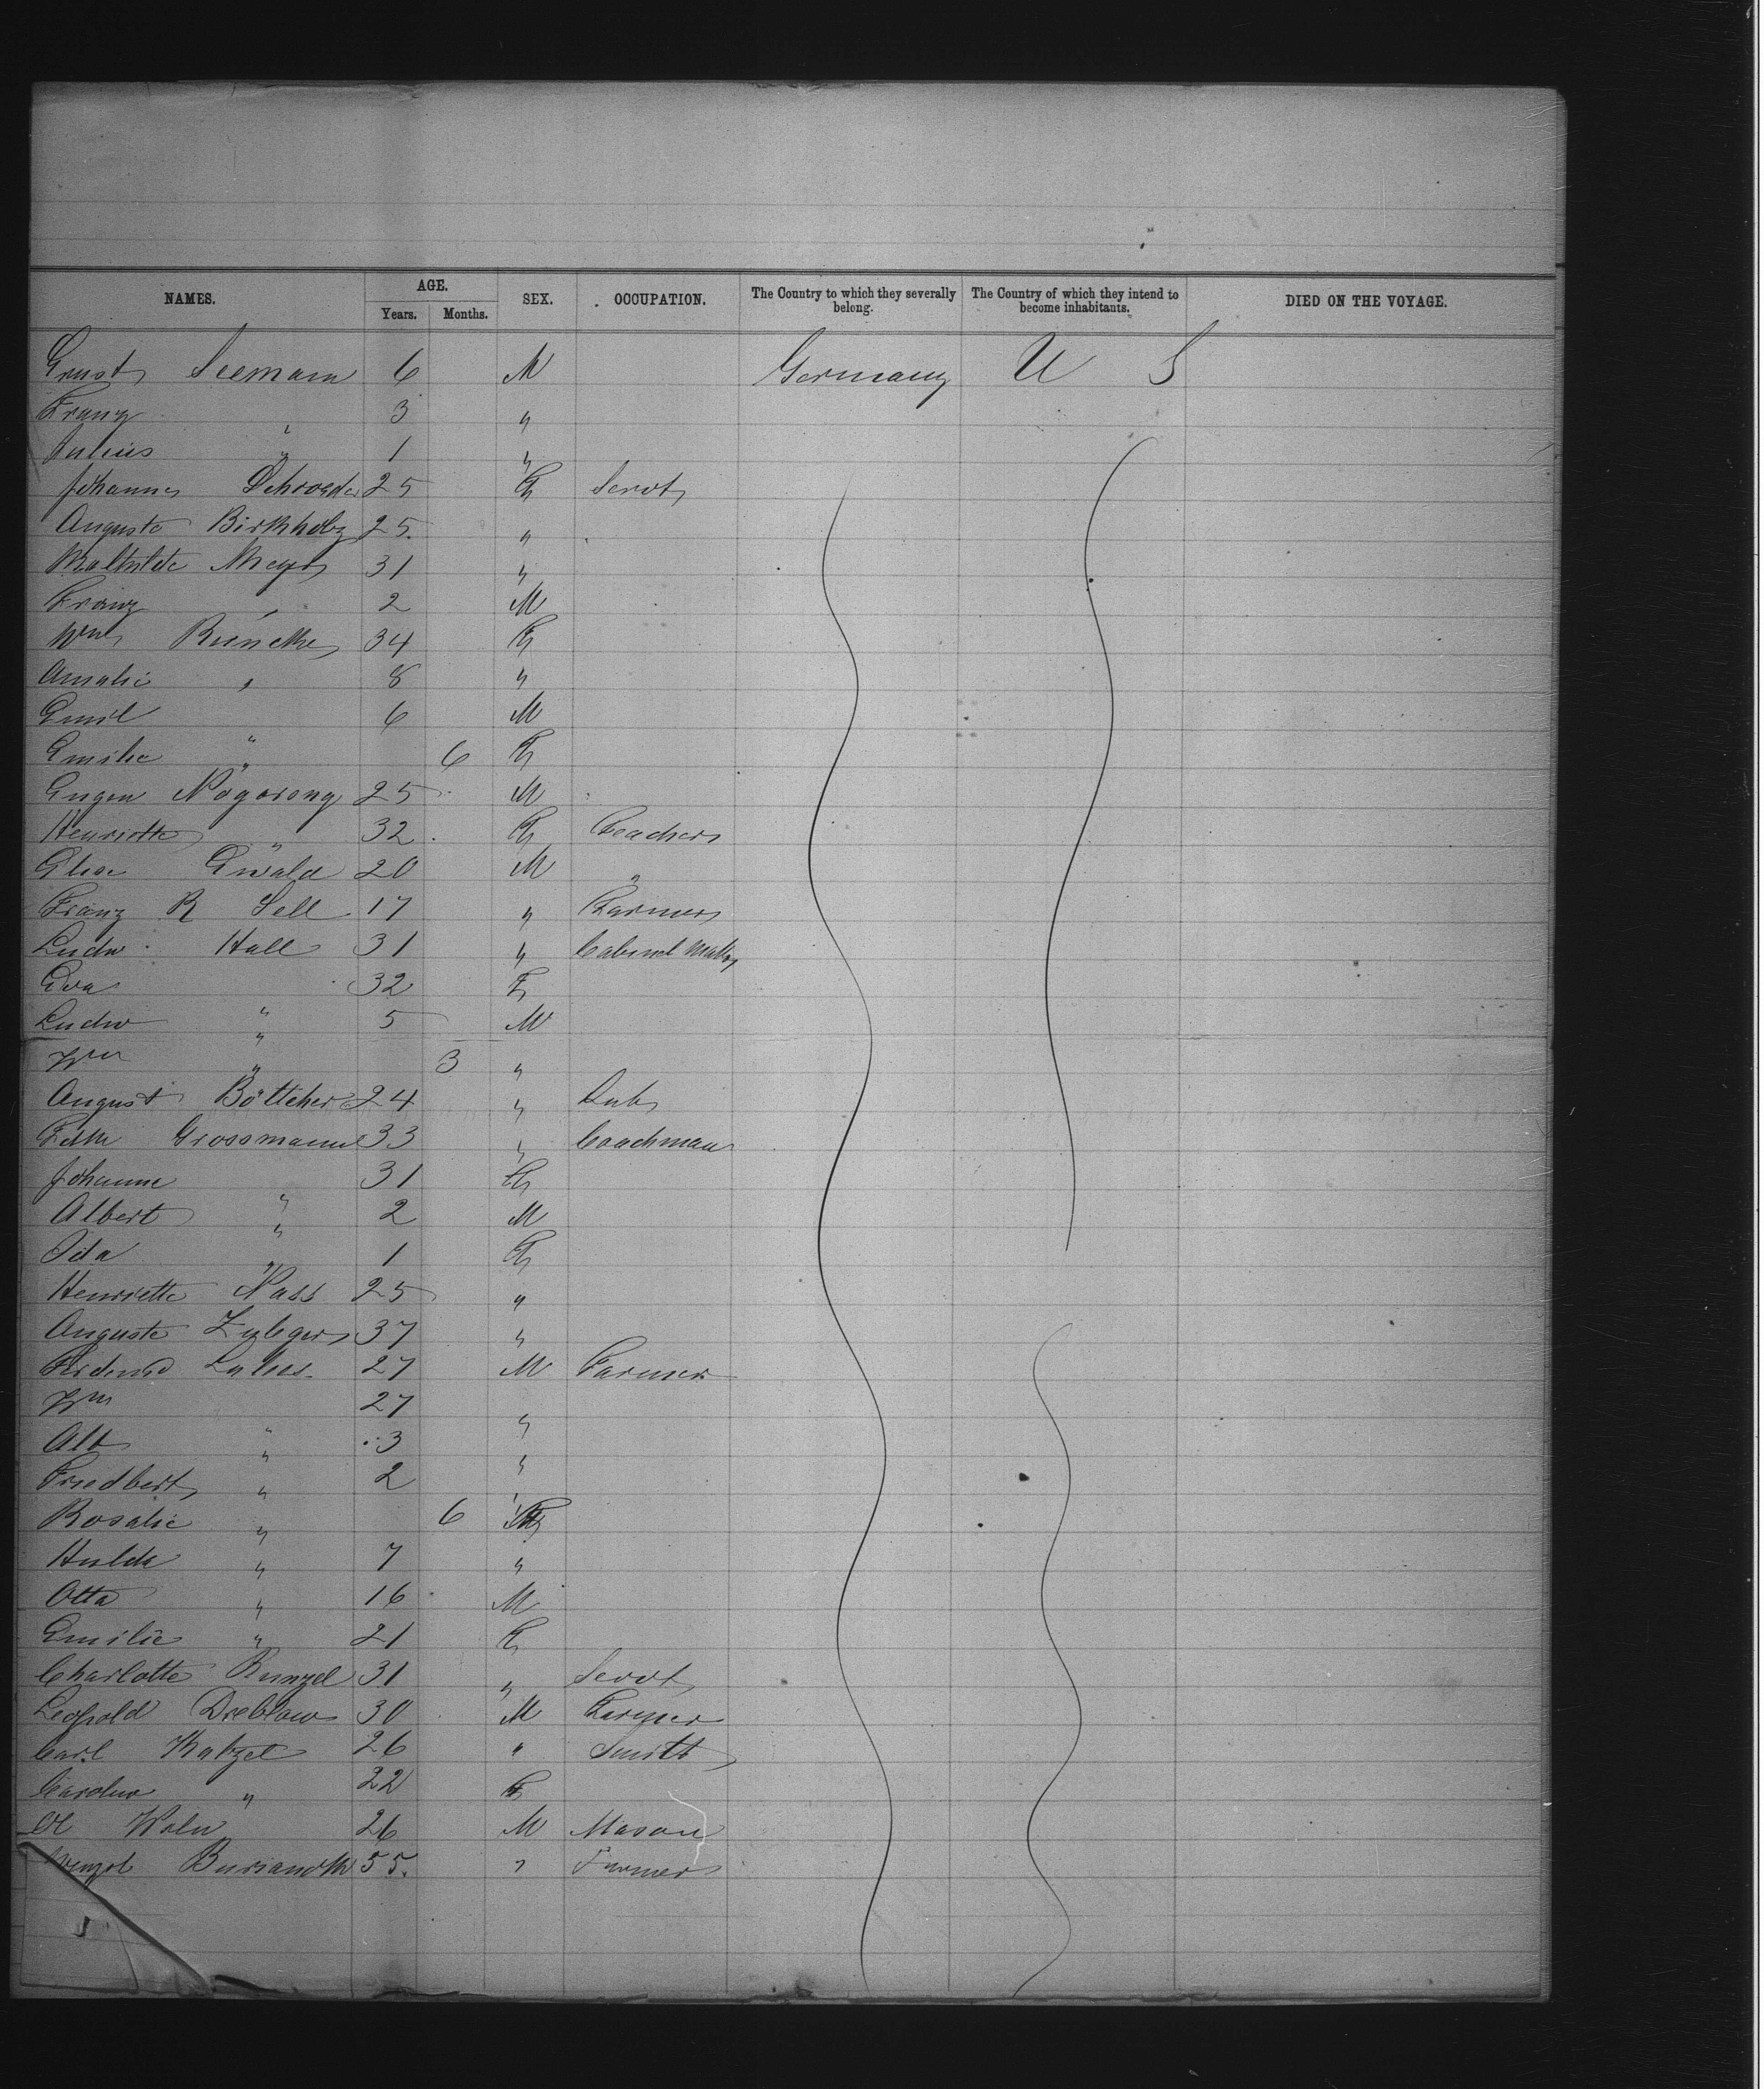 NAMES. AGE. SEX. OCCUPATION. The Country to which they severally belong. The Country of which they intend to become inhabitants. DIED ON THE VOYAGE.
Years. Months.
Ernst Seemann 6 M Germany U S
Franz " 3 "
Julius " 1 "
Johanna Schroeder 25 F Servt
Auguste Birkholz 25 "
Mathilde Meyer 31 "
Franz " 2 M
Wm 34 F
Amalie " 8 "
Emil " 6 M
Emilie " 6 F
Eugen 25 M
Henriette " 32 F Teacher
Elise Ewald 20 M "
Franz R Sell 17 " Farmer
Ludw Hall 31 " Cabinet Maker
Eva " 32 F
Ludw " 5 M
Wm " 3 "
August Böttcher 24 "
Grossmann 33 " Coachman
Johanne " 31 F
Albert " 2 M
Ida " 1 F
Henriette Nass 25 "
Auguste 37 "
Ferdend 27 M Farmer
Wm " 27 "
Alb " 3 "
Friedbert " 2 "
Rosalie " 6 F
Hulda " 7 "
Otto " 16 M
Emilie " 21 F
Charlotte Kunzel 31 " Servt
Leopold Dreblow 30 M Farmer
Carl Katzel 26 " Smith
Carolin " 22 F
26 M Mason
55 " Farmer